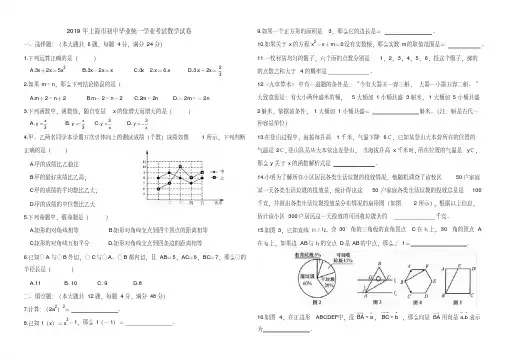 2019 年上海市初中毕业统一学业考试数学试卷
一、选择题：（本大题共 6题，每题 4分，满分 24分）
1.下列运算正确的是（ ）
A.3x＋2x＝5x² B.3x－2x＝x C.3x 2x＝6x D.3x÷2x＝2/3
2.如果 m＞n，那么下列结论错误的是（ ）
A.m＋2＞n＋2 B.m－2＞n－2 C.2m＞2n D.－2m＞－2n
3.下列函数中，函数值，随自变量 x的值增大而增大的是（ ）
A.y＝x/3 B.y＝－x/3 C.y＝3/x D.y＝－3/x
4.甲、乙两名同学本学期五次引体向上的测试成绩（个数）成绩如图 1所示，下列判断
正确的是（ ）
A.甲的成绩比乙稳定
B.甲的最好成绩比乙高；
C.甲的成绩的平均数比乙大；
D.甲的成绩的中位数比乙大
5.下列命题中，假命题是（ ）
A.矩形的对角线相等 B.矩形对角线交点到四个顶点的距离相等
C.矩形的对角线互相平分 D.矩形对角线交点到四条边的距离相等
6.已知⊙A与⊙B外切，⊙C与⊙A、⊙B都内切，且 AB＝5，AC＝6，BC＝7，那么⊙的
半径长是（ ）
A.11 B.10 C.9 D.8
二、填空题：（本大题共 12题，每题 4分，满分 48分）
7.计算：（2a²）²＝ 。
8.已知 f（x）＝x²－1，那么 f（－1）＝ 。
9.如果一个正方形的面积是 3，那么它的边长是 。
10.如果关于 x的方程 x²－x＋m＝0没有实数根，那么实数 m的取值范围是 。
11.一枚材质均匀的骰子，六个面的点数分别是 1，2，3，4，5，6，投这个骰子，掷的
的点数之和大于 4的概率是 。
12.《九章算术》中有一道题的条件是：“今有大器五一容三斛， 大器一小器五容二斛。”
大致意思是：有大小两种盛米的桶， 5大桶加 1小桶共盛 3斛米，1大桶加 5小桶共盛
2斛米，依据该条件， 1大桶加 1小桶共盛 斛米。（注：斛是古代一
种容量单位）
13.在登山过程中，海拔每升高 1千米，气温下降 6℃，已知某登山大本营所在的位置的
气温是 2℃，登山队员从大本营出发登山，当海拔升高 x千米时，所在位置的气温是 y℃，
那么 y关于 x的函数解析式是 。
14.小明为了解所在小区居民各类生活垃圾的投放情况，他随机调查了该校区 50户家庭
某一天各类生活垃圾的投放量，统计得出这 50户家庭各类生活垃圾的投放总量是 100
千克，并画出各类生活垃圾投放量分布情况的扇形图（如图 2所示），根据以上信息，
估计该小区 300户居民这一天投放的可回收垃圾共约 千克。
15.如图 3，已知直线 l₁∥l₂，含 30°角的三角板的直角顶点 C在 l₁上，30°角的顶点 A
在 l₂上，如果边 AB与 l₁的交点 D是 AB的中点，那么∠1＝ 。
图2 图3 图4 图5
16.如图 4，在正边形 ABCDEF中，设 BA＝a，BC＝b，那么向量 BA用向量 a、b表示
为 。